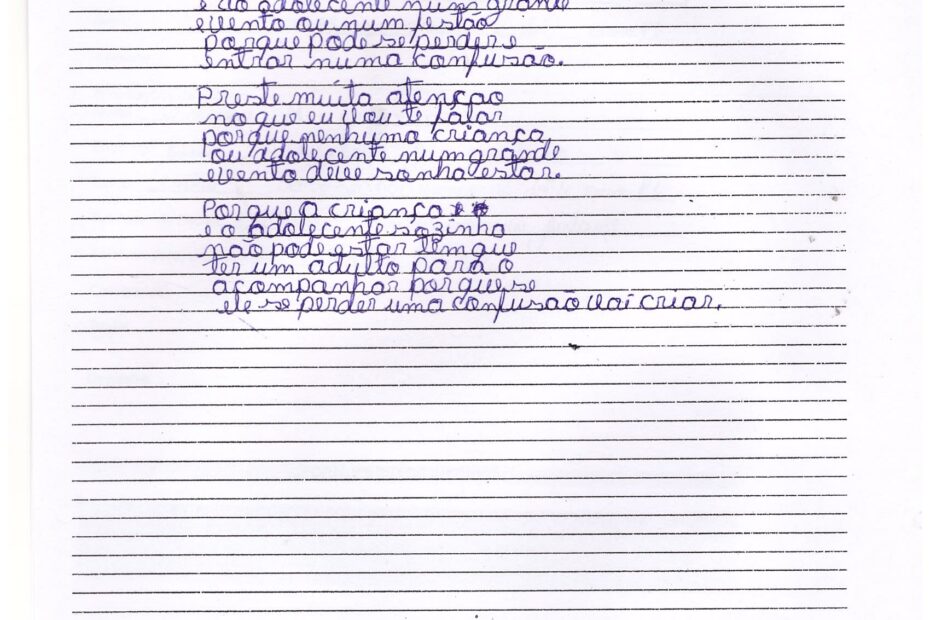 e do adolecente num grande
evento ou num festão
porque pode se perder e
entrar numa confusão.
Preste muita atençao
no que eu vou te falar
porque nenhuma criança
ou adolecente num grande
evento deve sonha estar.
Porque a criança
e o adolecente sozinho
não pode estar têm que
ter um adulto para o
acompanhar porque se
ele se perder uma confusão vai criar.